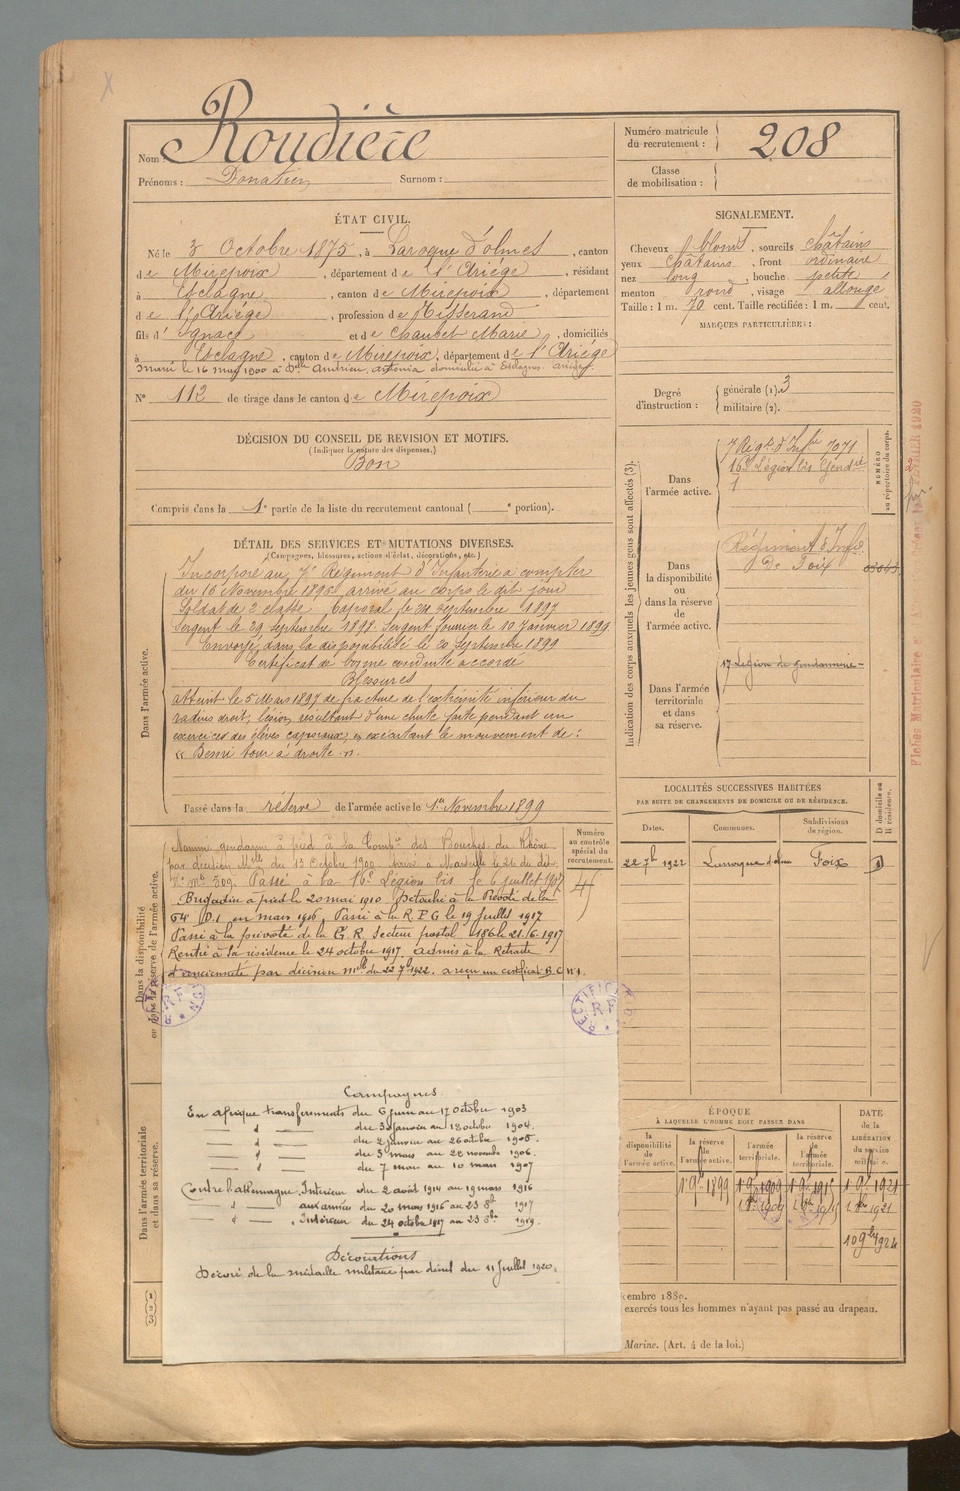 Nom : Roudière
Prénoms : Donatien Surnom :
Numéro matricule du recrutement : 208
Classe de mobilisation :
ÉTAT CIVIL.
Né le 3 Octobre 1875, à Laroque d'olmes, canton
de Mirepoix, département de l'Ariége, résidant
à Esclagne, canton de Mirepoix, département
de l'Ariége, profession de Tisserand
fils d'Ignace et de Chaubet Marie, domiciliés
à Esclagne, canton de Mirepoix, département de l'Ariége
marié le 16 mai 1900 à Dlle Andrieu, domicilié à Esclagne
N° 112 de tirage dans le canton de Mirepoix
SIGNALEMENT.
Cheveux blonds, sourcils châtains
yeux châtains, front ordinaire
nez long, bouche petite
menton rond, visage allongé
Taille : 1 m. 70 cent. Taille rectifiée : 1 m. cent.
MARQUES PARTICULIÈRES :
Degré d'instruction : générale (1). 3
militaire (2).
DÉCISION DU CONSEIL DE REVISION ET MOTIFS.
(Indiquer la nature des dispenses.)
Bon
Compris dans la 1e partie de la liste du recrutement cantonal ( e portion).
DÉTAIL DES SERVICES ET MUTATIONS DIVERSES.
(Campagnes, blessures, actions d'éclat, décorations, etc.)
Dans l'armée active.
Incorporé au 7e Régiment d'Infanterie à compter
du 16 Novembre 1896 arrivé au corps le dit jour
Soldat de 2 classe Caporal le 24 septembre 1897
Sergent le 29 septembre 1898 Sergent fourrier le 10 Janvier 1899
Envoyé dans la disponibilité le 20 Septembre 1899
Certificat de bonne conduite accordé
Blessures
atteint le 5 Mars 1897 de fracture de l'extrémité inférieur du
radius droit, lésion résultant d'une chute faite pendant un
exercices des élèves caporaux, en exécutant le mouvement de :
« Demi tour à droite ».
Passé dans la réserve de l'armée active le 1er Novembre 1899
Dans la disponibilité ou dans la réserve de l'armée active.
Numéro au contrôle spécial du recrutement.
Nommé gendarme à pied à la Compie des Bouches du Rhône
par décision Mlle du 13 Octobre 1900. Arrivé à Marseille le 24 du dit
Passé à la 16e Légion bis le 6 juillet 1907
Brigadier à pied le 20 mai 1910 Détaché à la Prévoté de la
64e D.I en mars 1916, Passé à la R F G le 19 Juillet 1917
Passé à la prévoté de la R secteur postal 186 le 21.6.1917
Rentré à sa résidence le 24 octobre 1917. admis à la Retraite
d'ancienneté par décision mlle du 22 7b 1922. a reçu un certificat B.C. N° 1.
RECTIFICATION
Campagnes.
En afrique transferements du 6 juin au 17 octobre 1903
— d — du 30 janvier au 18 octobre 1904.
— d — du 2 janvier au 26 octobre 1905.
— d — du 3 mars au 28 novembre 1906.
— d — du 7 mars au 10 mars 1907
Contre l'allemagne, Intérieur du 2 août 1914 au 19 mars 1916
— d — aux armées du 20 mars 1916 au 23 8b 1917
— d — Intérieur du 24 octobre 1917 au 23 8bre 1919.
Décorations
Décoré de la médaille militaire par décret du 11 Juillet 1920.
Dans l'armée territoriale et dans sa réserve.
1 2 3
Indication des corps auxquels les jeunes gens sont affectés (3).
Dans l'armée active.
7 Régt d'Infie 7071
16e Légion bis Gendie
NUMÉRO au répertoire du corps.
Dans la disponibilité ou dans la réserve de l'armée active.
Régiment d'Infie
De Foix
Dans l'armée territoriale et dans sa réserve.
17 Légion de gendarmerie
LOCALITÉS SUCCESSIVES HABITÉES
PAR SUITE DE CHANGEMENTS DE DOMICILE OU DE RÉSIDENCE.
Dates. Communes. Subdivisions de région. D domicile ou R résidence.
22 7b 1922 Laroque d'olmes Foix D
ÉPOQUE
À LAQUELLE L'HOMME DOIT PASSER DANS
la disponibilité de l'armée active. la réserve de l'armée active. l'armée territoriale. la réserve de l'armée territoriale.
DATE de la LIBÉRATION du service militaire.
1 9b 1899 1 9b 1909 1 9b 1915 1 9b 1921
1909 1915 1921
10 9b 1924
embre 1889.
exercés tous les hommes n'ayant pas passé au drapeau.
Marine. (Art. 4 de la loi.)
Fiches Matriculaire
FÉVRIER 1920